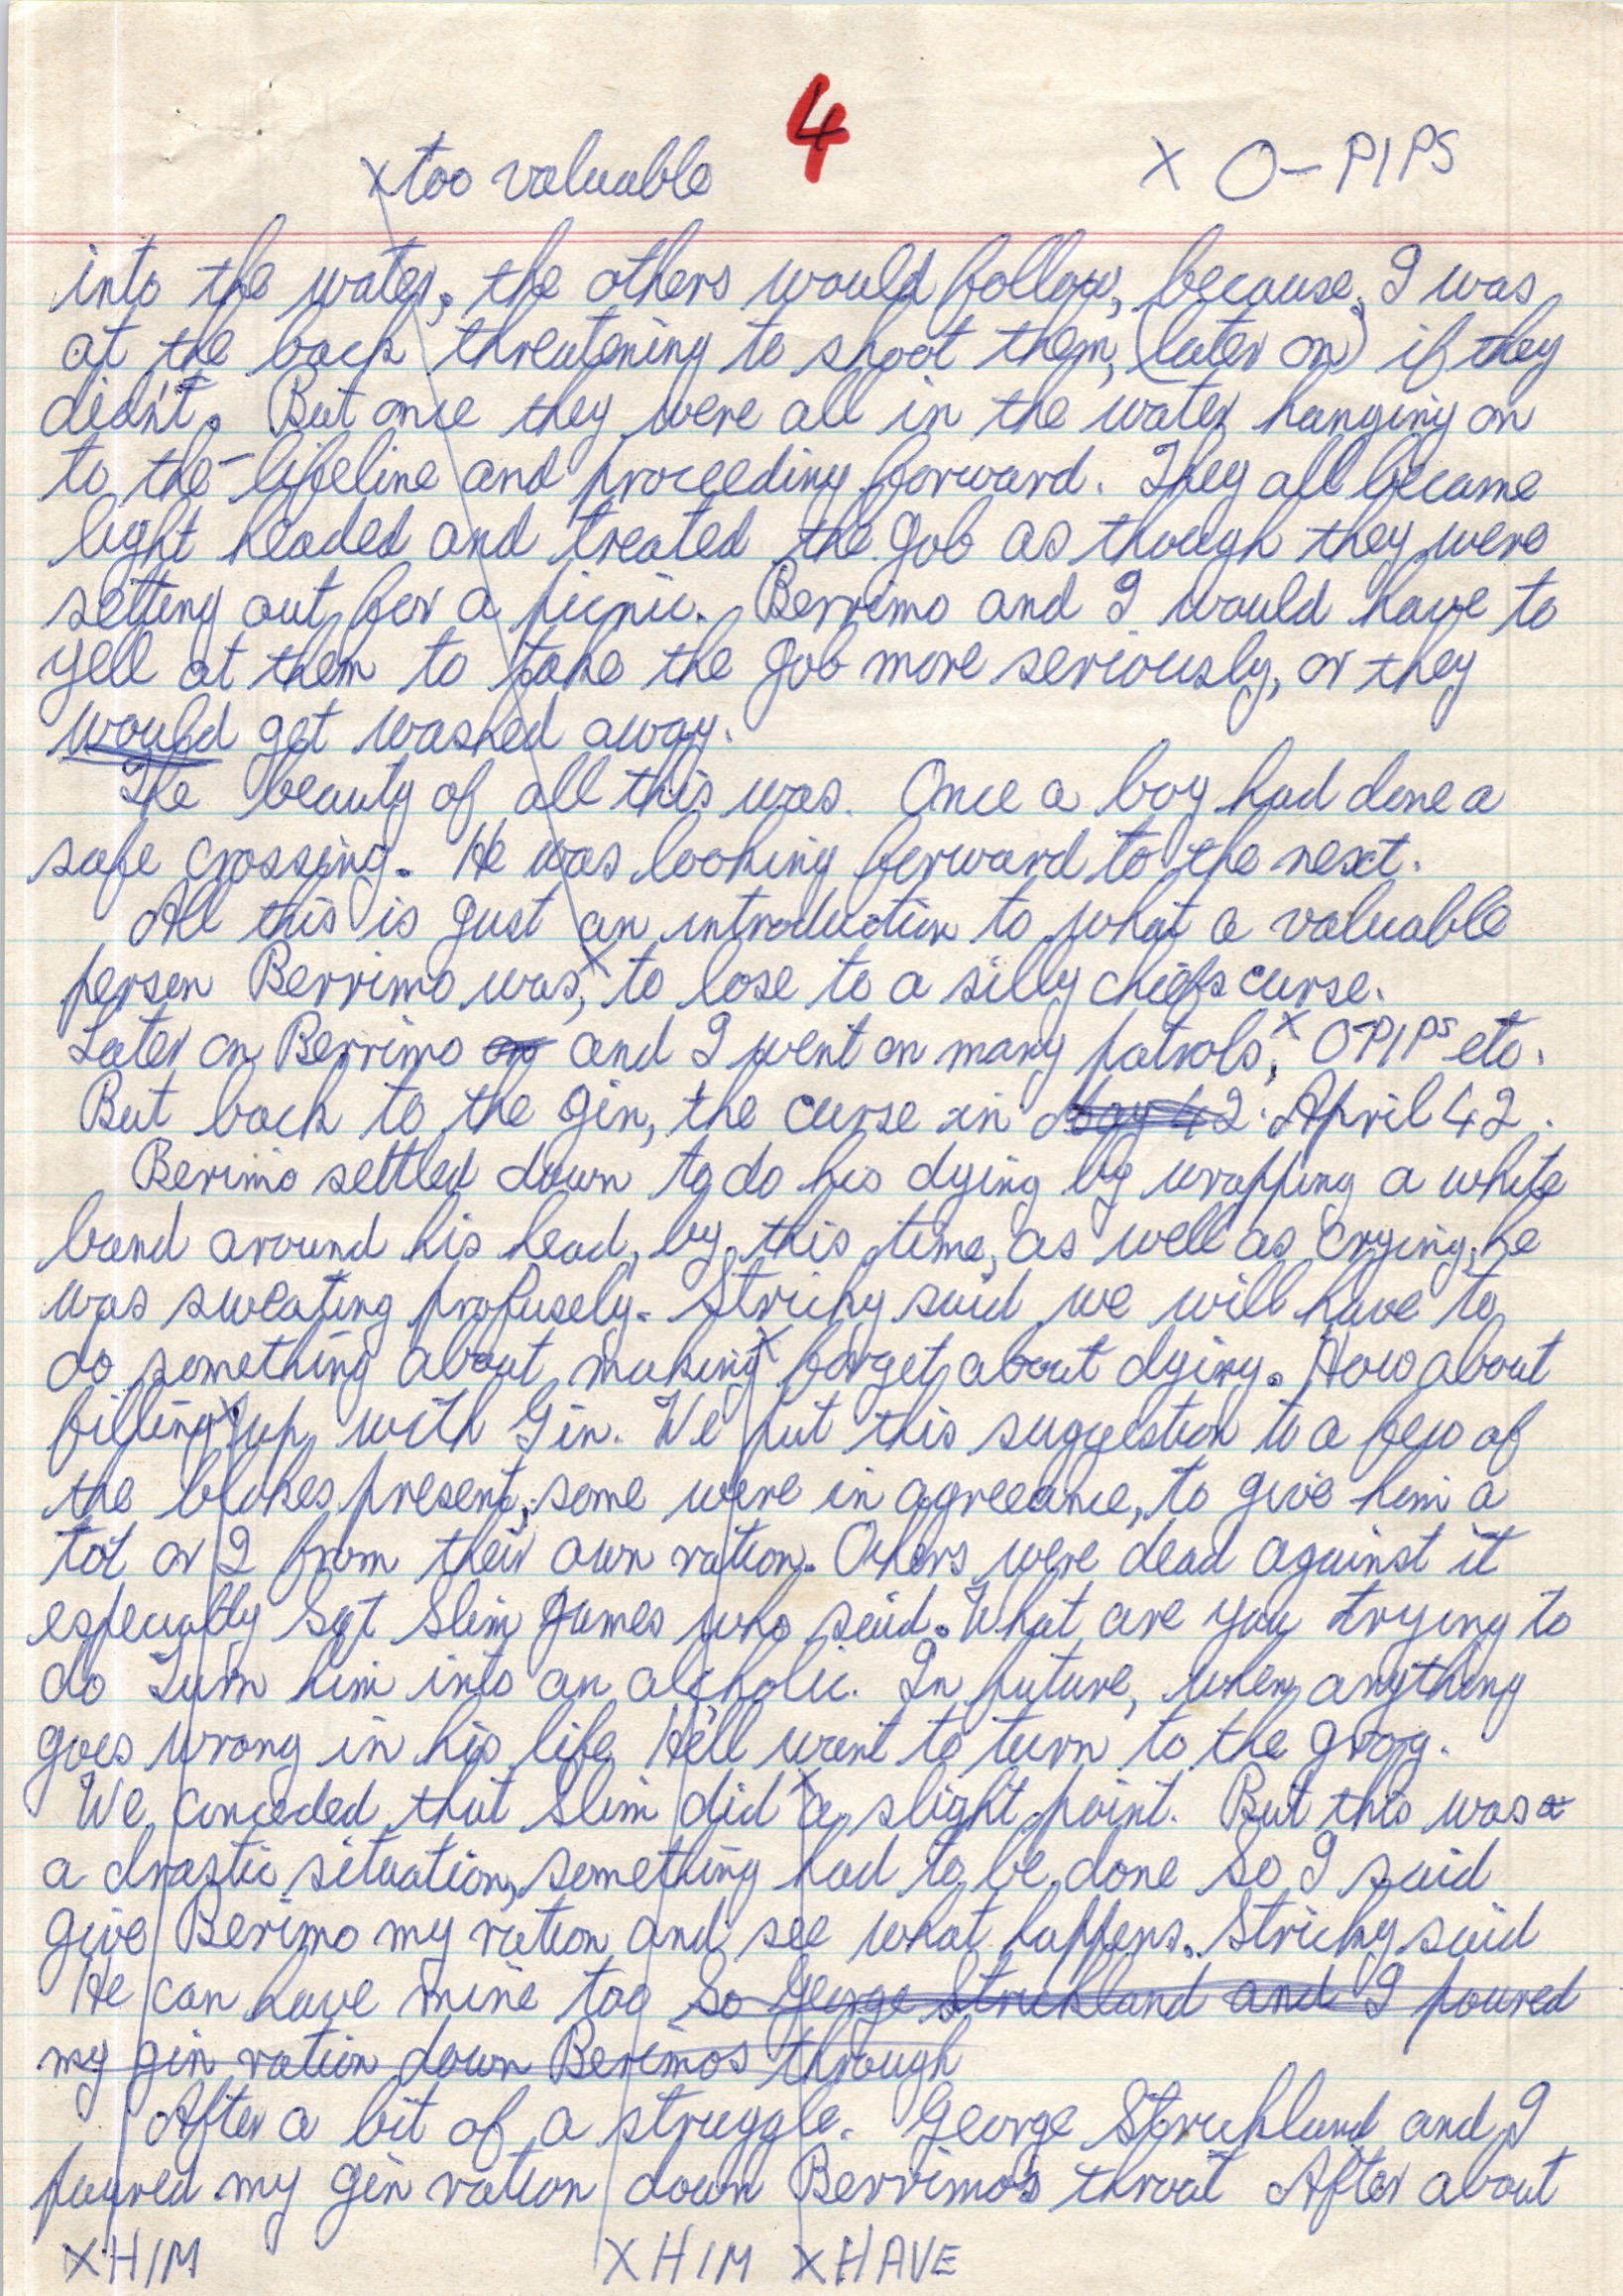 4
x too valuable x O-PIPS
into the water, the others would follow, because, I was
at the back threatening to shoot them, (later on) if they
didn't. But once they were all in the water hanging on
to the - lifeline and proceeding forward. They all became
light headed and treated the job as though they were
setting out for a picnic. Berrimo and I would have to
yell at them to take the job more seriously, or they
would get washed away.
The beauty of all this was. Once a boy had done a
safe crossing. He was looking forward to the next.
All this is just an introduction to what a valuable
person Berrimo was,x to lose to a silly chiefs curse.
Later on Berrimo on and I went on many patrols,x O-PIPS etc.
But back to the gin, the curse in May 42. April 42.
Berimo settled down to do his dying by wrapping a white
band around his head, by this time, as well as crying, he
was sweating profusely. Stricky said we will have to
do something about makingx forget about dying. How about
fillingx up with Gin. We put this suggestion to a few of
the blokes present, some were in agreeance, to give him a
tot or 2 from their own ration. Others were dead against it
especially Sgt Slim James who said. What are you trying to
do Turn him into an alcholic. In future, when anything
goes wrong in his life He'll want to turn to the grog.
We conceded that Slim did x a slight point. But this was a
a drastic situation, something had to be done So I said
give Berimo my ration and see what happens. Stricky said
He can have mine too So George Strickland and I poured
my gin ration down Berimos through
After a bit of a struggle. George Strickland and I
poured my gin ration down Berrimo's throat After about
x HIM x HIM x HAVE